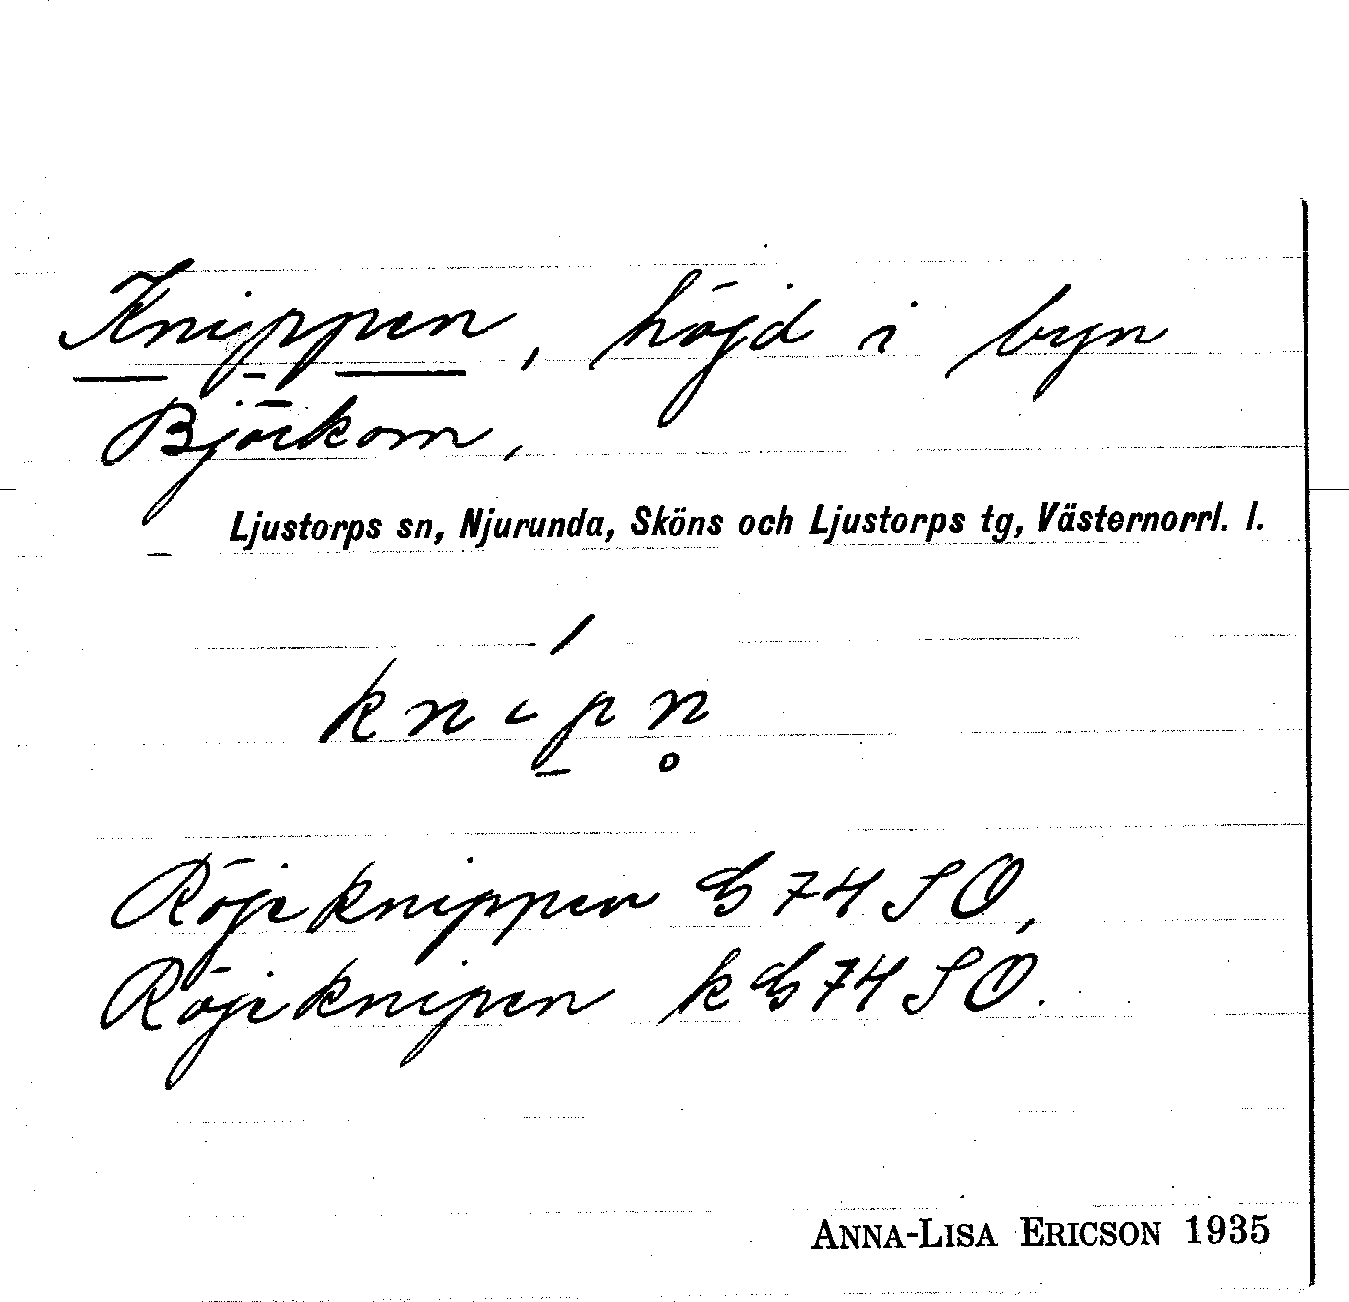 Knippen, höjd i byn
Björkom,
Ljustorps sn, Njurunda, Sköns och Ljustorps tg, Västernorrl. l.
knipn̥
Röjeknippen G 74 SO,
Röjeknipen k G 74 SO.
ANNA-LISA ERICSON 1935